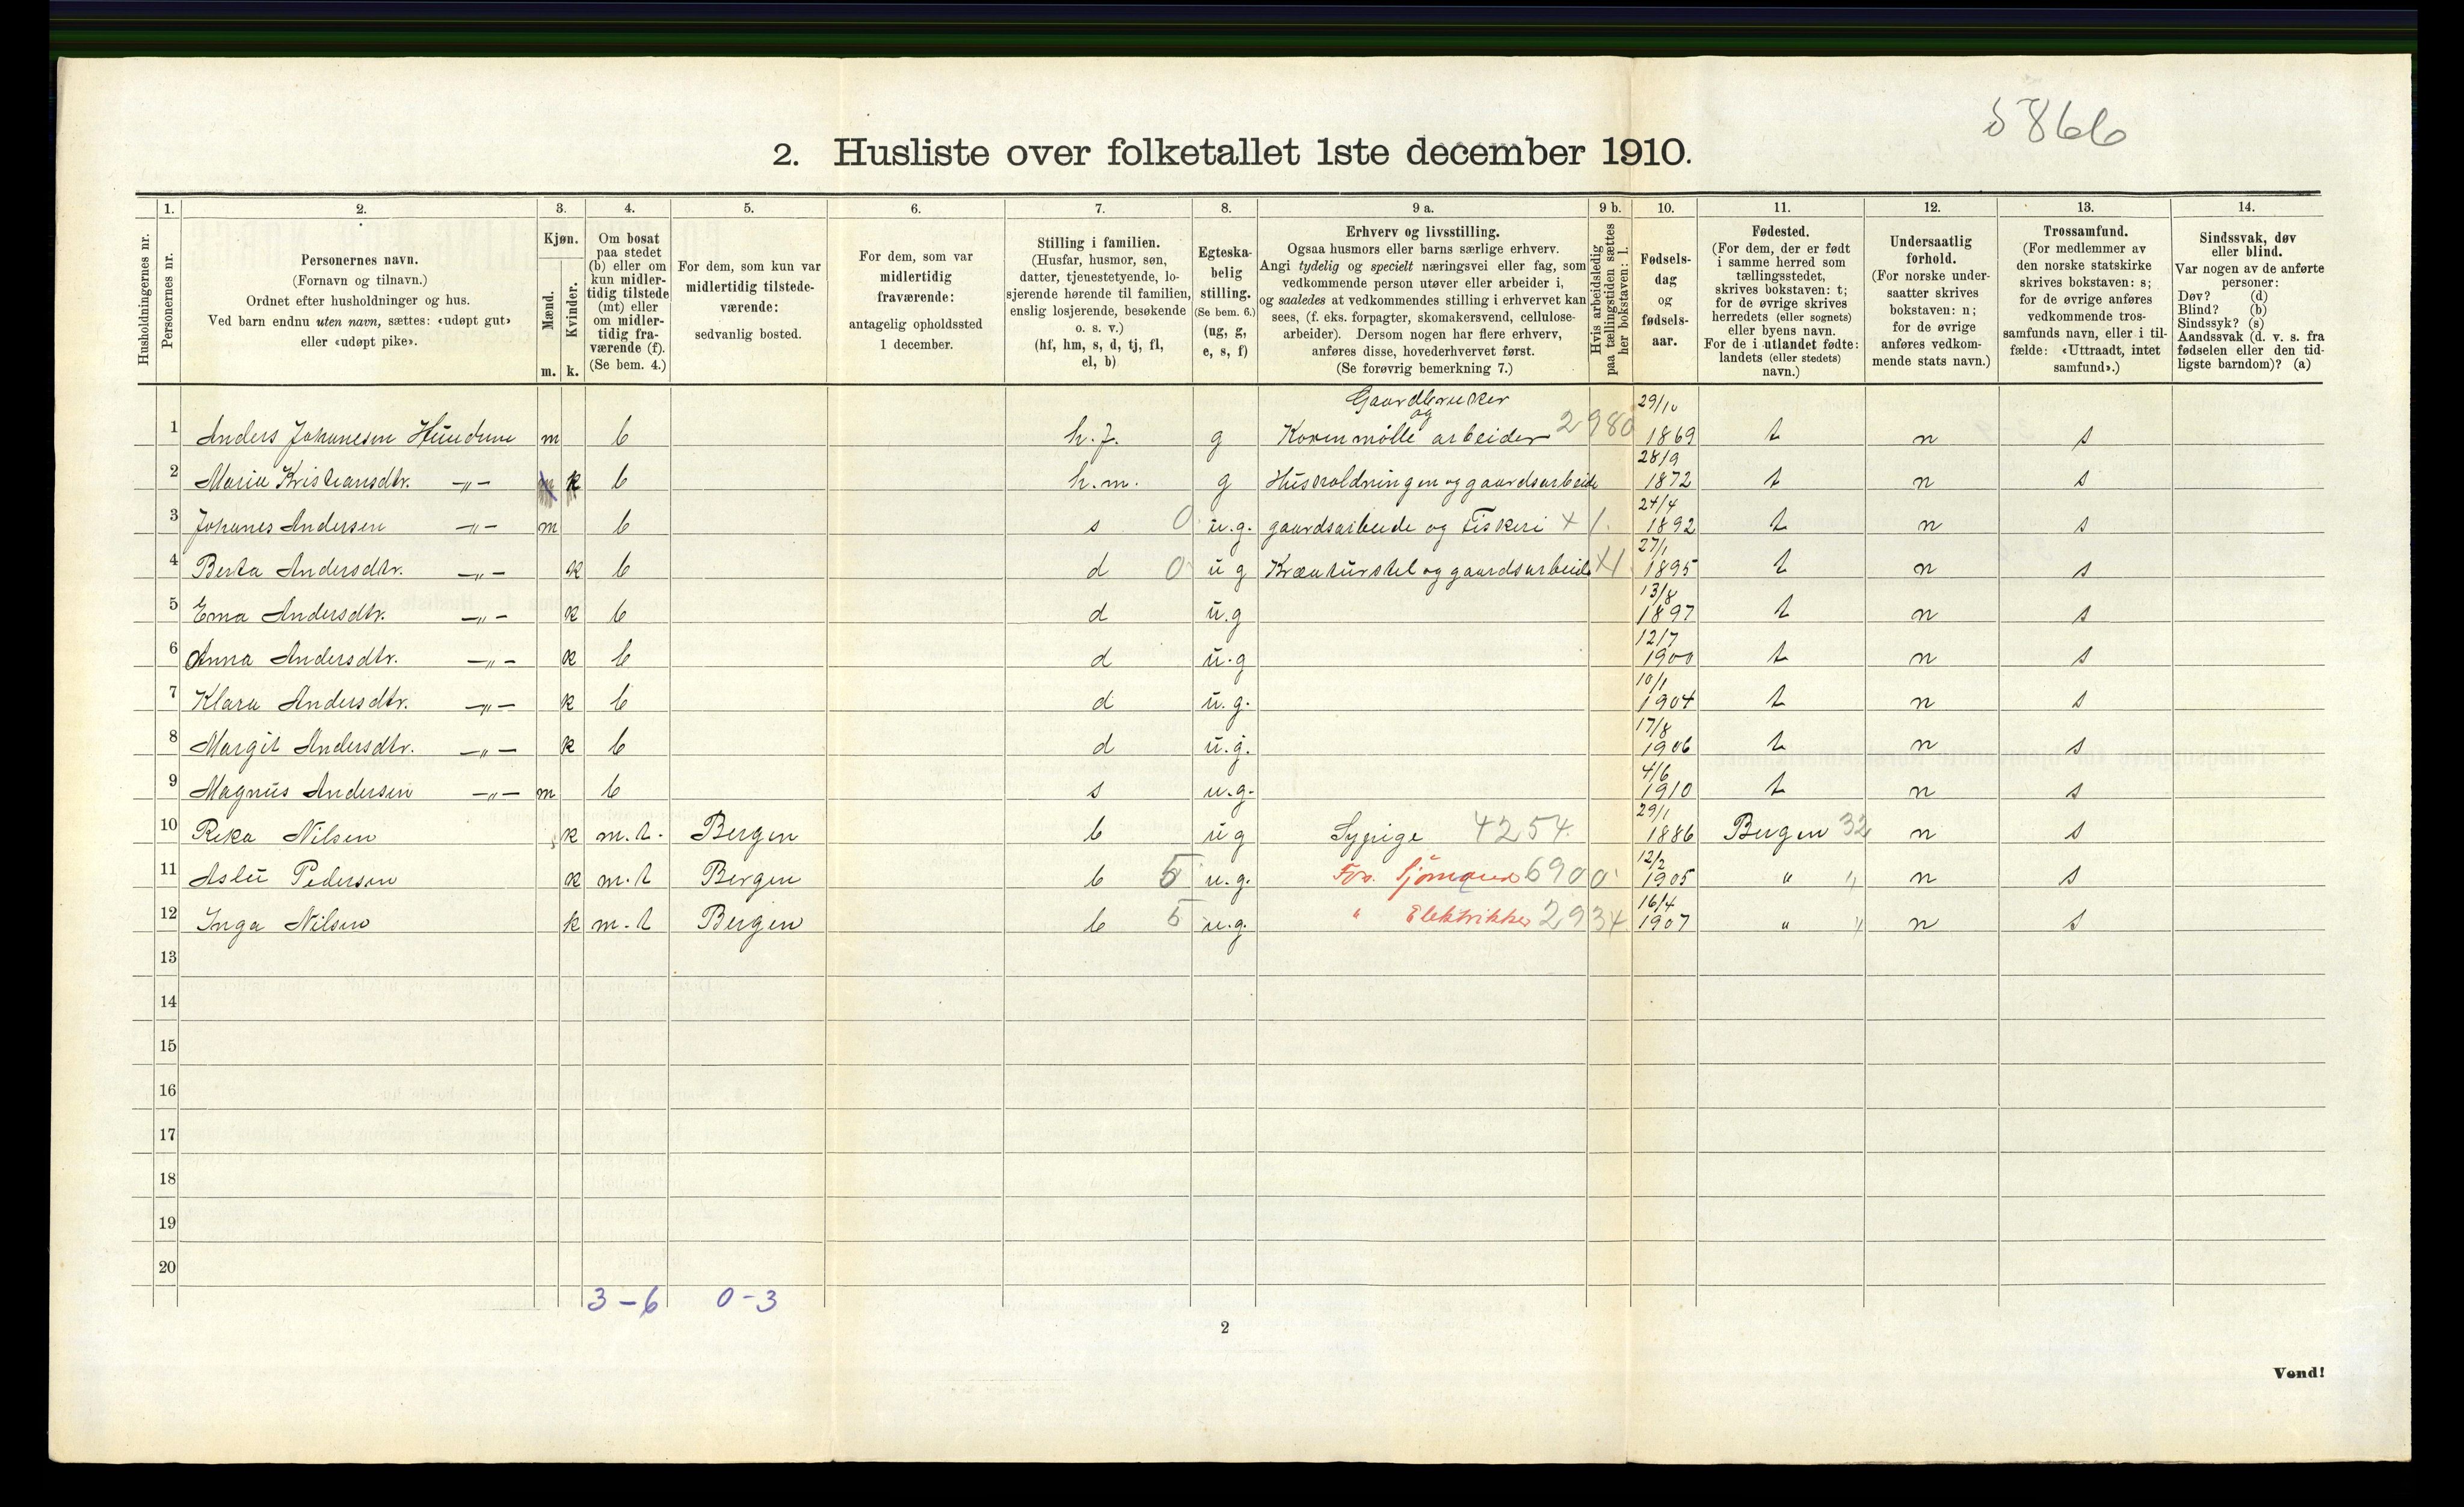 5866
2. Husliste over folketallet 1ste december 1910.
Husholdningernes nr.
1.
Personernes nr.
2.
Personernes navn.
(Fornavn og tilnavn.)
Ordnet efter husholdninger og hus.
Ved barn endnu uten navn, sættes: «udøpt gut»
eller «udøpt pike».
3.
Kjøn.
Mænd.
Kvinder.
m. k.
4.
Om bosat
paa stedet
(b) eller om
kun midler-
tidig tilstede
(mt) eller
om midler-
tidig fra-
værende (f).
(Se bem. 4.)
5.
For dem, som kun var
midlertidig tilstede-
værende:
sedvanlig bosted.
6.
For dem, som var
midlertidig
fraværende:
antagelig opholdssted
1 december.
7.
Stilling i familien.
(Husfar, husmor, søn,
datter, tjenestetyende, lo-
sjerende hørende til familien,
enslig losjerende, besøkende
o. s. v.)
(hf, hm, s, d, tj, fl,
el, b)
8.
Egteska-
belig
stilling.
(Se bem. 6.)
(ug, g,
e, s, f)
9 a.
Erhverv og livsstilling.
Ogsaa husmors eller barns særlige erhverv.
Angi tydelig og specielt næringsvei eller fag, som
vedkommende person utøver eller arbeider i,
og saaledes at vedkommendes stilling i erhvervet kan
sees, (f. eks. forpagter, skomakersvend, cellulose-
arbeider). Dersom nogen har flere erhverv,
anføres disse, hovederhvervet først.
(Se forøvrig bemerkning 7.)
9 b.
Hvis arbeidsledig
paa tællingstiden sættes
her bokstaven: l.
10.
Fødsels-
dag
og
fødsels-
aar.
11.
Fødested.
(For dem, der er født
i samme herred som
tællingsstedet,
skrives bokstaven: t;
for de øvrige skrives
herredets (eller sognets)
eller byens navn.
For de i utlandet fødte:
landets (eller stedets)
navn.)
12.
Undersaatlig
forhold.
(For norske under-
saatter skrives
bokstaven: n;
for de øvrige
anføres vedkom-
mende stats navn.)
13.
Trossamfund.
(For medlemmer av
den norske statskirke
skrives bokstaven: s;
for de øvrige anføres
vedkommende tros-
samfunds navn, eller i til-
fælde: «Uttraadt, intet
samfund».)
14.
Sindssvak, døv
eller blind.
Var nogen av de anførte
personer:
Døv? (d)
Blind? (b)
Sindssyk? (s)
Aandssvak (d. v. s. fra
fødselen eller den tid-
ligste barndom)? (a)
Gaardbruker 29/10
og
1 Anders Johanesen m b h.f. g Korenmølle arbeider 2980 1869 t n s
28/9
2 Maria Kristiansdtr. —„— k b h.m. g Husholdningen og gaardsarbeide 1872 t n s
24/4
3 Johanes Andersen —„— m b s 0 u.g. gaardsarbeide og Fiskeri x 1. 1892 t n s
27/1
4 Berta Andersdtr. —„— k b d 0 u g Kræaturstel og gaardsarbeide x1 1895 t n s
13/8
5 Ema Andersdtr. —„— k b d u.g 1897 t n s
12/7
6 Anna Andersdtr. —„— k b d u.g 1900 t n s
10/1
7 Klara Andersdtr. —„— k b d u.g. 1904 t n s
17/8
8 Margit Andersdtr. —„— k b d u.g. 1906 t n s
4/6
9 Magnus Andersen —„— m b s u.g. 1910 t n s
29/1
10 Rika Nilsen k m.t. Bergen b u g Sypige 4254. 1886 Bergen 32 n s
12/2
11 Pedersen k m.t Bergen b 5 u.g. For. Sjømand 6900 1905 " " n s
16/4
12 Inga Nilsen k m.t Bergen b 5 u.g. " Elektrikker 2934 1907 " " n s
13
14
15
16
17
18
19
20
3-6 0-3
2
Vend!